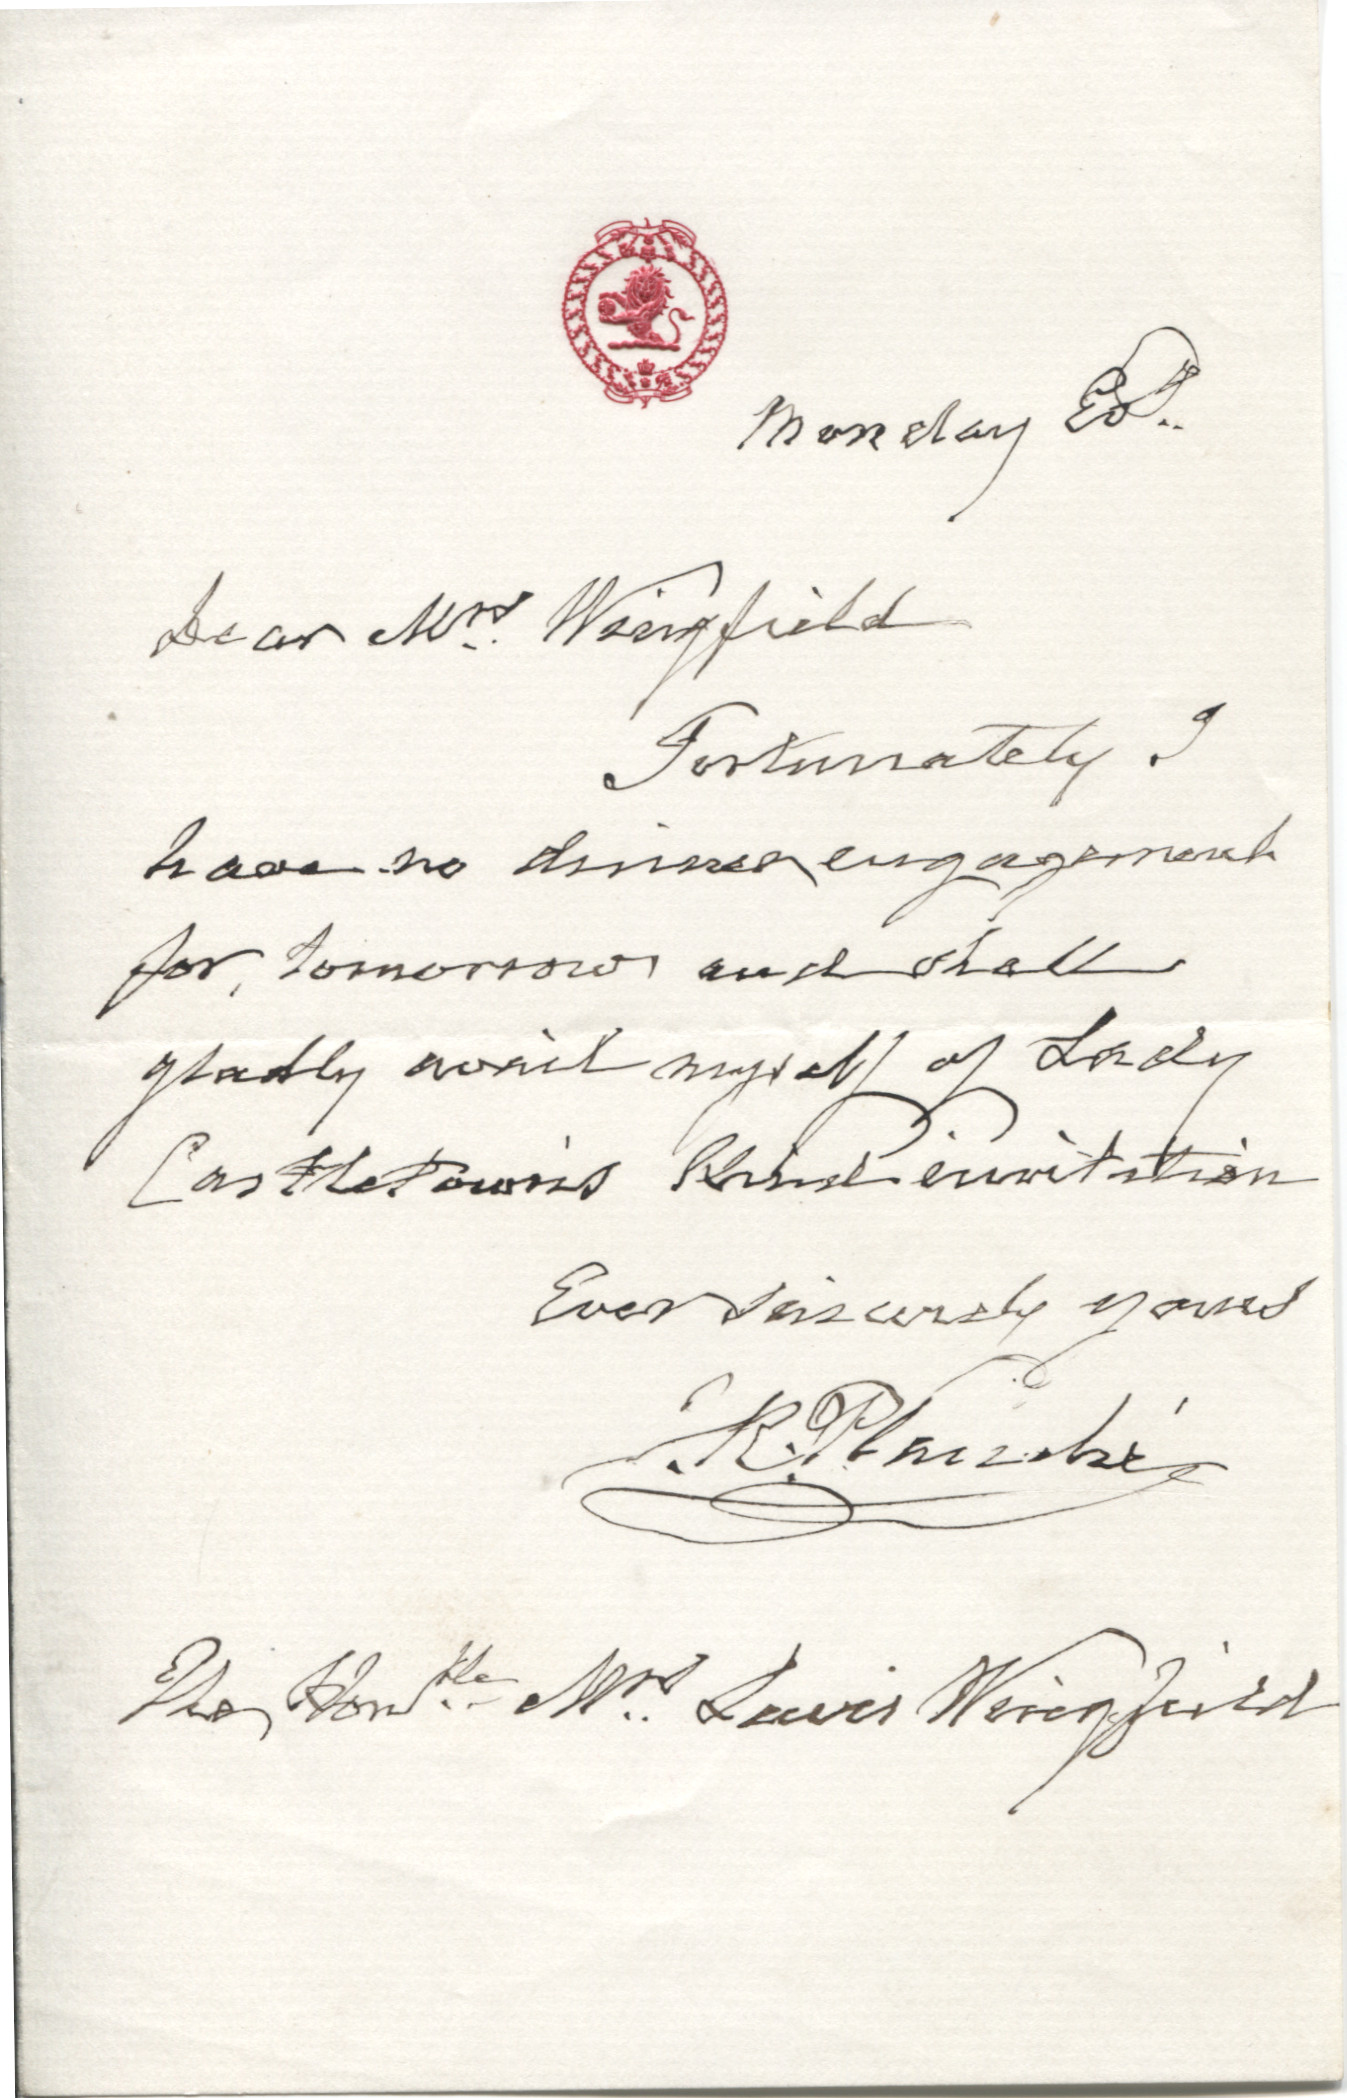 Monday Evg.
Dear Mrs. Wingfield
Fortunately I
have no dinner engagement
for tomorrow and shall
gladly avail myself of Lady
Castletown's kind invitation
Ever sincerely yours
J. R. Planché
The Honble. Mrs. Lewis Wingfield